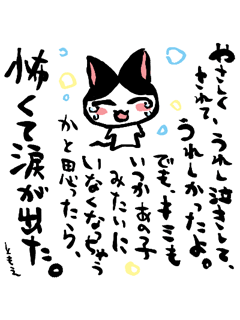 やさしく、うれし泣きして、
されて、
うれしかったよ。
でも、キミも
いつかあの子
みたいに
いなくなっちゃう
かと思ったら、
怖くて涙が出た。
ともえ